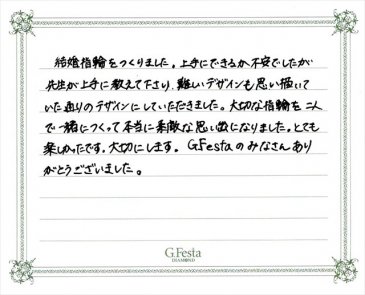 結婚指輪をつくりました。上手にできるか不安でしたが
先生が上手に教えて下さり、難しいデザインも思い描いて
いた通りのデザインにしていただきました。大切な指輪を二人
で一緒につくって本当に素敵な思い出になりました。とても
楽しかったです。大切にします。G.Festaのみなさんあり
がとうございました。
G.Festa
DIAMOND